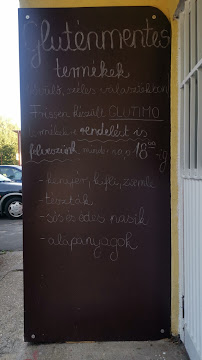 Gluténmentes
termékek
széles választékban
Frissen készült GLUTIMO
termékek rendelést is
felveszünk minden nap 18⁰⁰-ig
- kenyér, kifli, zsemle
- tészták
- sós és édes nasik
- alapanyagok